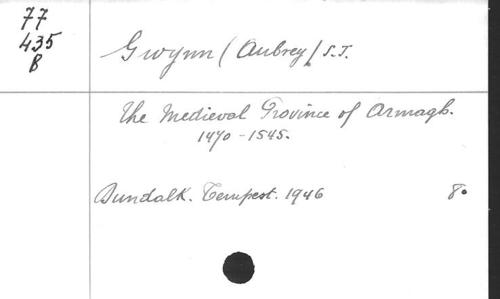 77
435
B
Gwynn (Aubrey) S.J.
The Medieval Province of Armagh.
1470-1545.
Dundalk. Tempest. 1946 8°